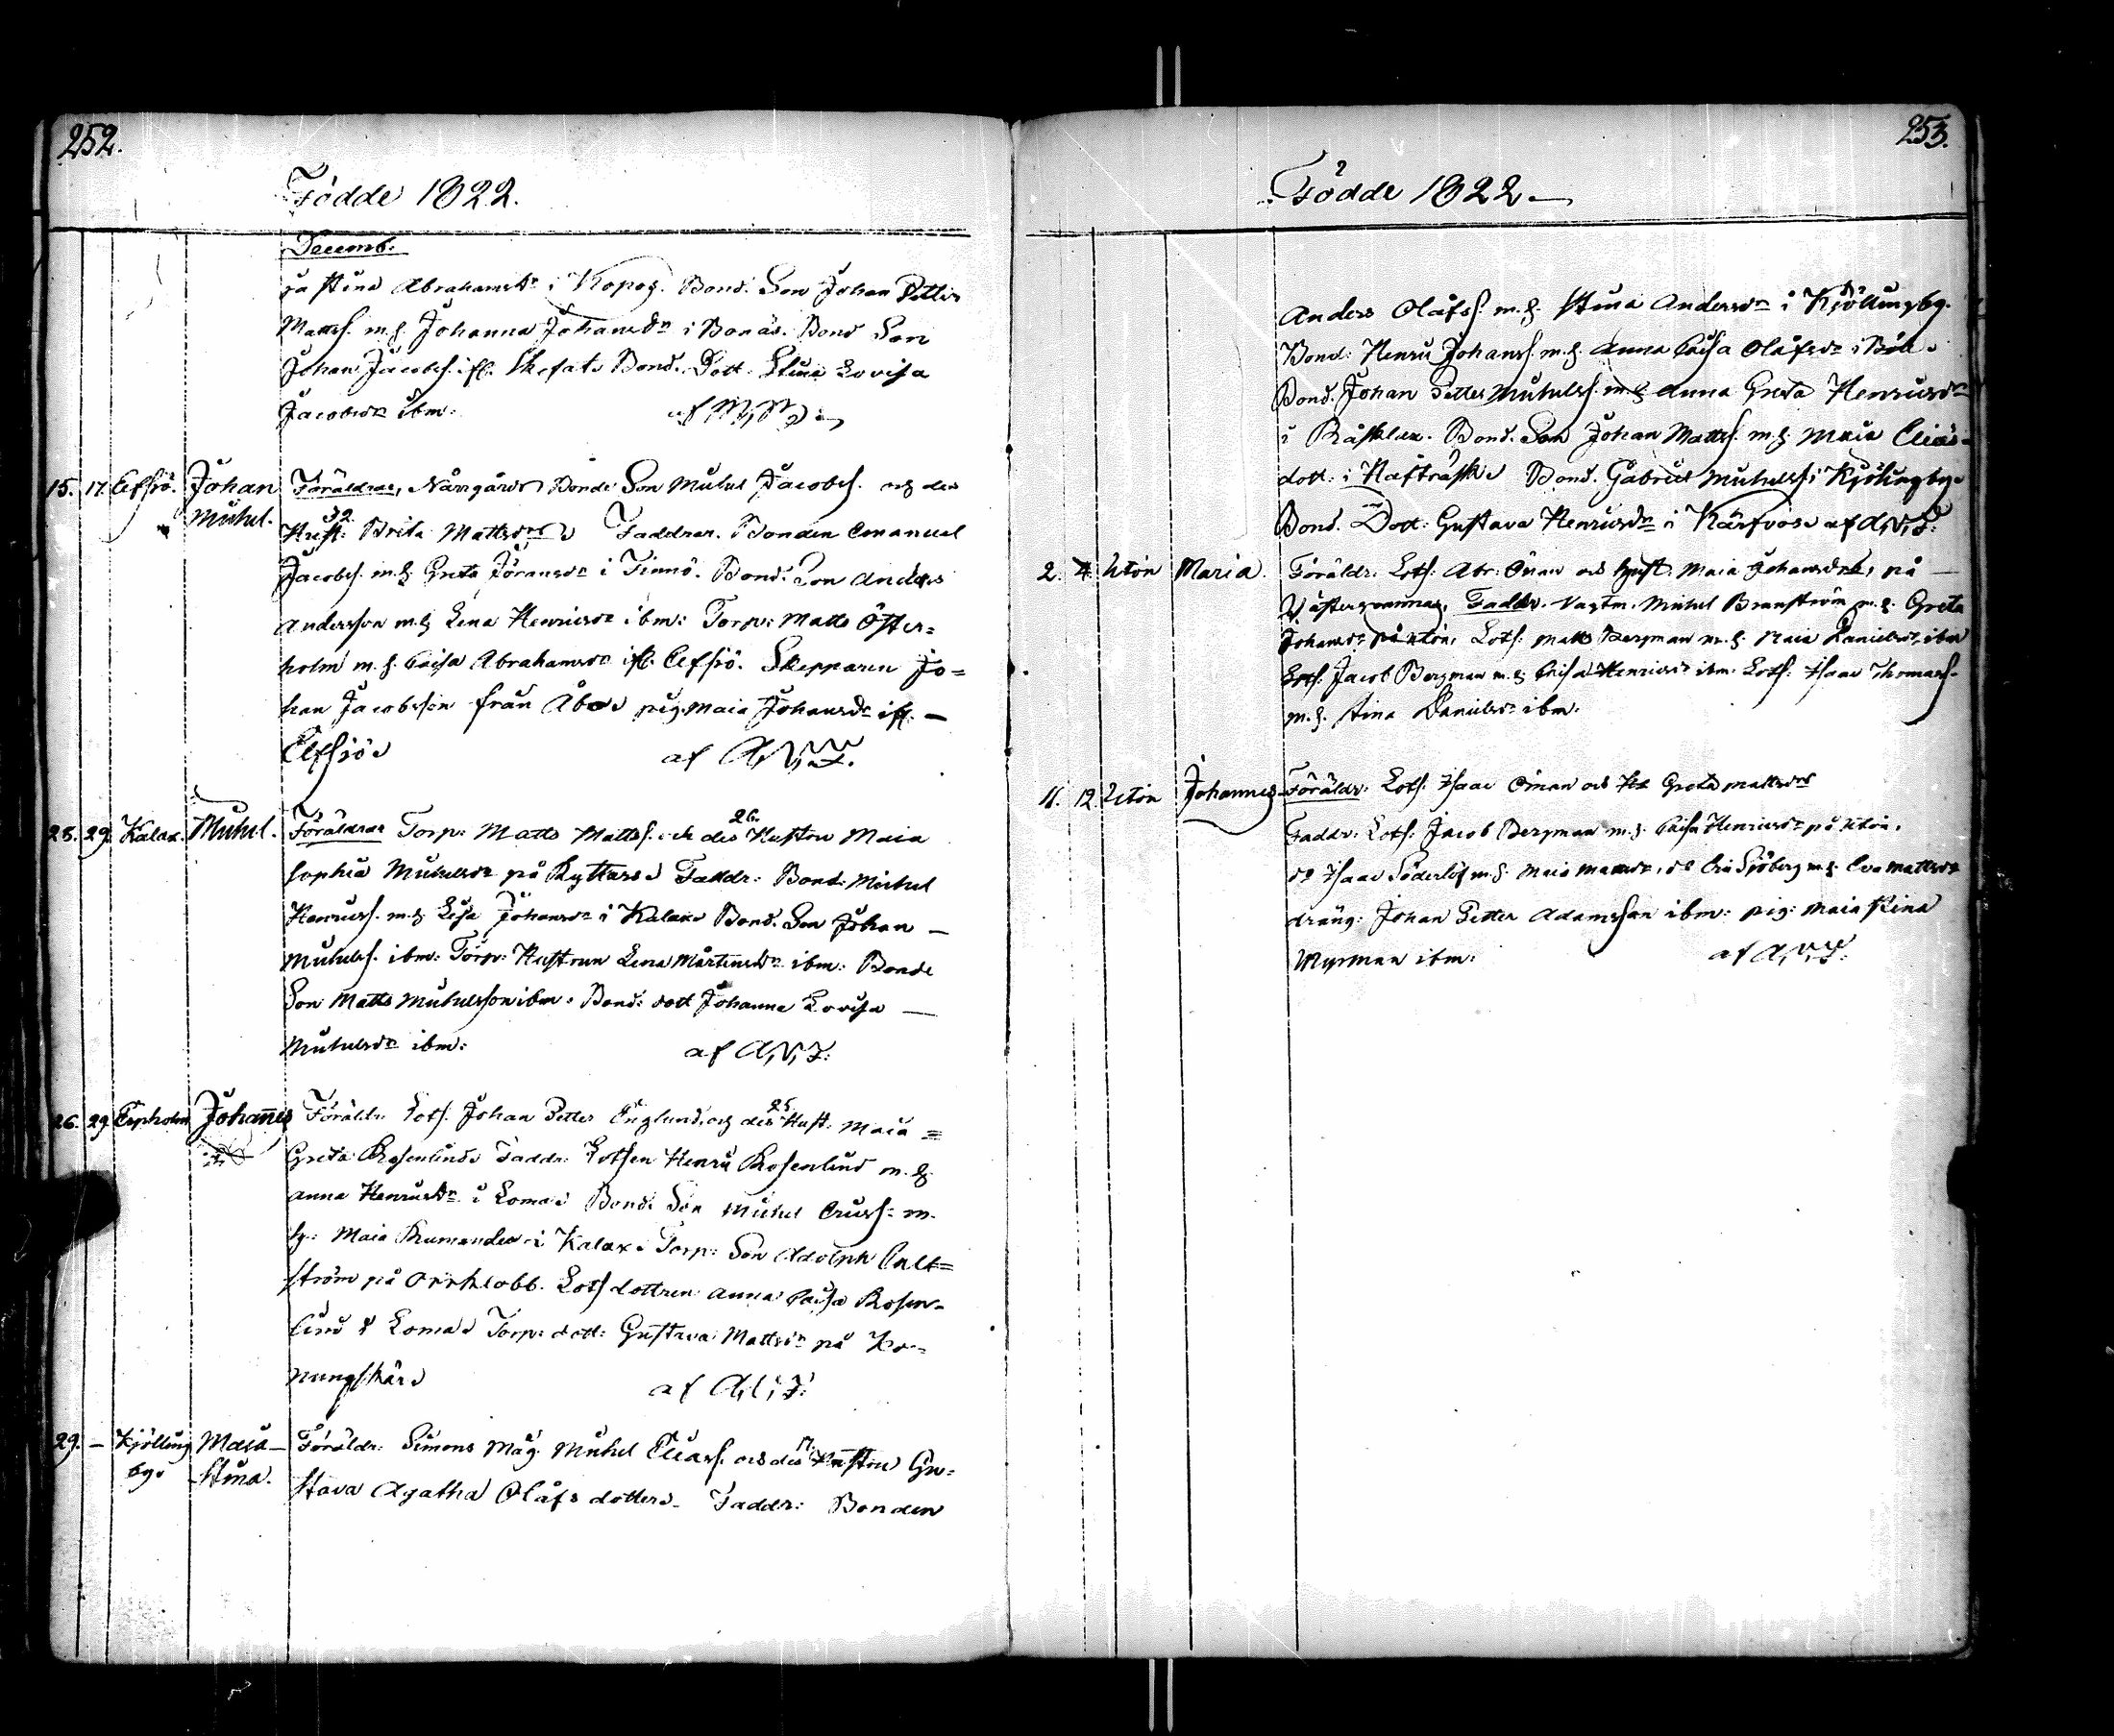 252.
Födde 1822.
Decemb:
ja Stina Abrahamsdr i Kopog. Bond. Son Johan Petter
Matts. m. h. Johanna Johansdr i Bonäs. Bond Son
Johan Jacobs. ifl. Bond. Dott. Stina Lovisa
Jacobsdr ibm: af
15. 17. Elfsjö. Johan Michel. Föräldrar, Närrgårds Bonde Son Michel Jacobs. och des
32
Hust: Brita Mattsdr Faddrar. Bonden Emanuel
Jacobs. m. h. Greta Jöransdr i Finnö. Bond. Son Anders
Andersson m. h. Lena Henricsdr ibm: Torp: Matts Öster=
holm m. h. Caisa Abrahamsdr ifl. Elfsjö. Skepparen Jo=
han Jacobsson från Åbo pig. Maia Johansdr ifl. —
Elfsjö af A, N, F.
28. 29. Kalax. Michel. Föräldrar Torp: Matts Matts. och des 26. Hustru Maia
Sophia Michelsdr på Ryttars Faddr: Bond: Michel
Henrics. m. h. Lisa Johansdr i Kalax Bond. Son Johan —
Michels. ibm: Torp: Hustrun Lena Mårtensdr ibm: Bonde
Son Matts Michelsson ibm: Bond: dott Johanna Lovisa —
Michelsdr ibm: af A, N, F:
26. 29. Johannes Föräldr: Lots. Johan Petter Englund, och des 25. Hust. Maia =
Greta Rosenlind Faddr: Lotsen Henric Rosenlind m. h.
Anna Henricsdr i Loma Bond: Son Michel Erics: m.
h: Maia i Kalax Torp: Son Adolph
ström på Orrklobb. Lots dottren Anna Caisa Rosen-
lind i Loma Torp: dott: Gustava Mattsdr på Ko=
nungskär af
29. — Kjölling by. Maia — Stina. Föräldr: Simons Måg. Michel Elias. och des Hustru Gu=
stava Agatha Olåfs dotter. Faddr: Bonden
253.
Födde 1822 —
Anders Olåfs. m. h. Stina Andersdr i Kjöllingby.
Bond: Henric Johans. m. h. Anna Caisa Olåfsdr i
Bond. Johan Petter Michels. m. h. Anna Greta Henricsdr
i Bond. Son Johan Matts. m. h. Maia Elias-
dott: i Bond. Gabriel Michels. i Kjölingby.
Bond. Dott: Gustava Henricsdr i Kärfvos af A, N, F:
2. 4. Utön Maria. Föräldr. Lots: Abr: Öman och hust. Maia Johansdr, på —
Faddr. Michel Branström m. h. Greta
Johansdr på utön, Lots: Matts Bergman m. h. Maia Danielsdr, ibm
Lots. Jacob Bergman m. h. Caisa Henricsdr ibm. Lots: Isaac Thomas-
m. h. Stina Danielsdr ibm.
11. 12. Utön Johannes Föräldr: Lots. Isaac Öman och Greta Mattsdr
Faddr: Lots: Jacob Bergman m. h. Caisa Henricsdr på utön.
do Isaac Söderlöf m. h. Maia Mattsdr, do Eric Sjöberg m. h. Eva Mattsdr
dräng: Johan Petter Adamsson ibm: pig: Maia Stina
Myrman ibm: af A, N, F: